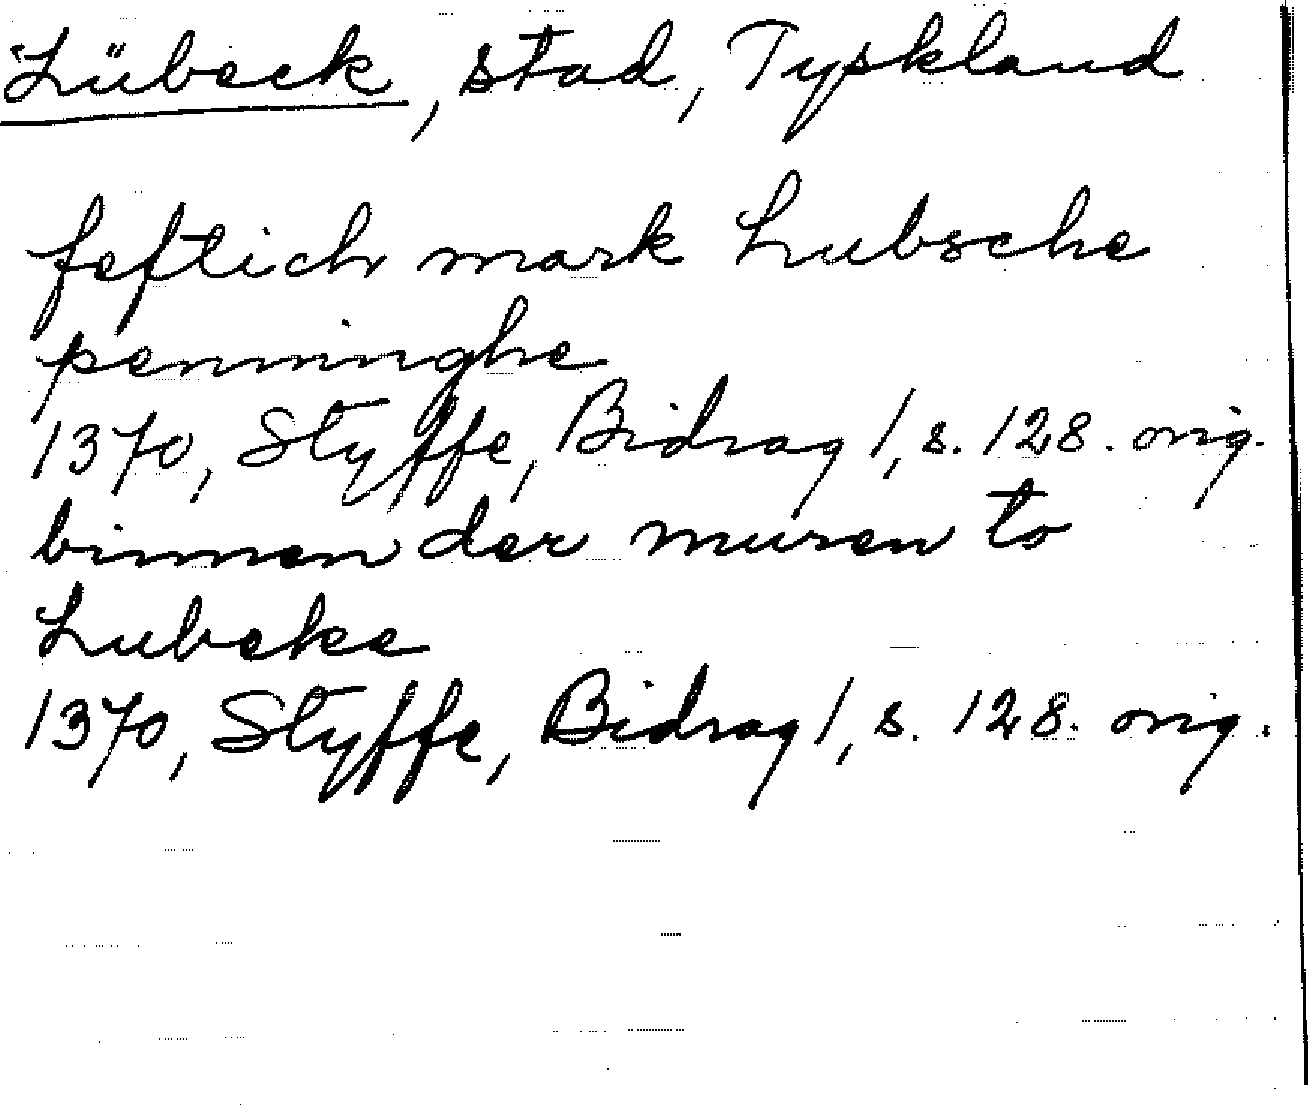 Lübeck, stad, Tyskland
feftich mark Lubsche
penninghe
1370, Styffe, Bidrag 1, s. 128. orig.
binnen der muren to
Lubeke
1370, Styffe, Bidrag 1, s. 128. orig.